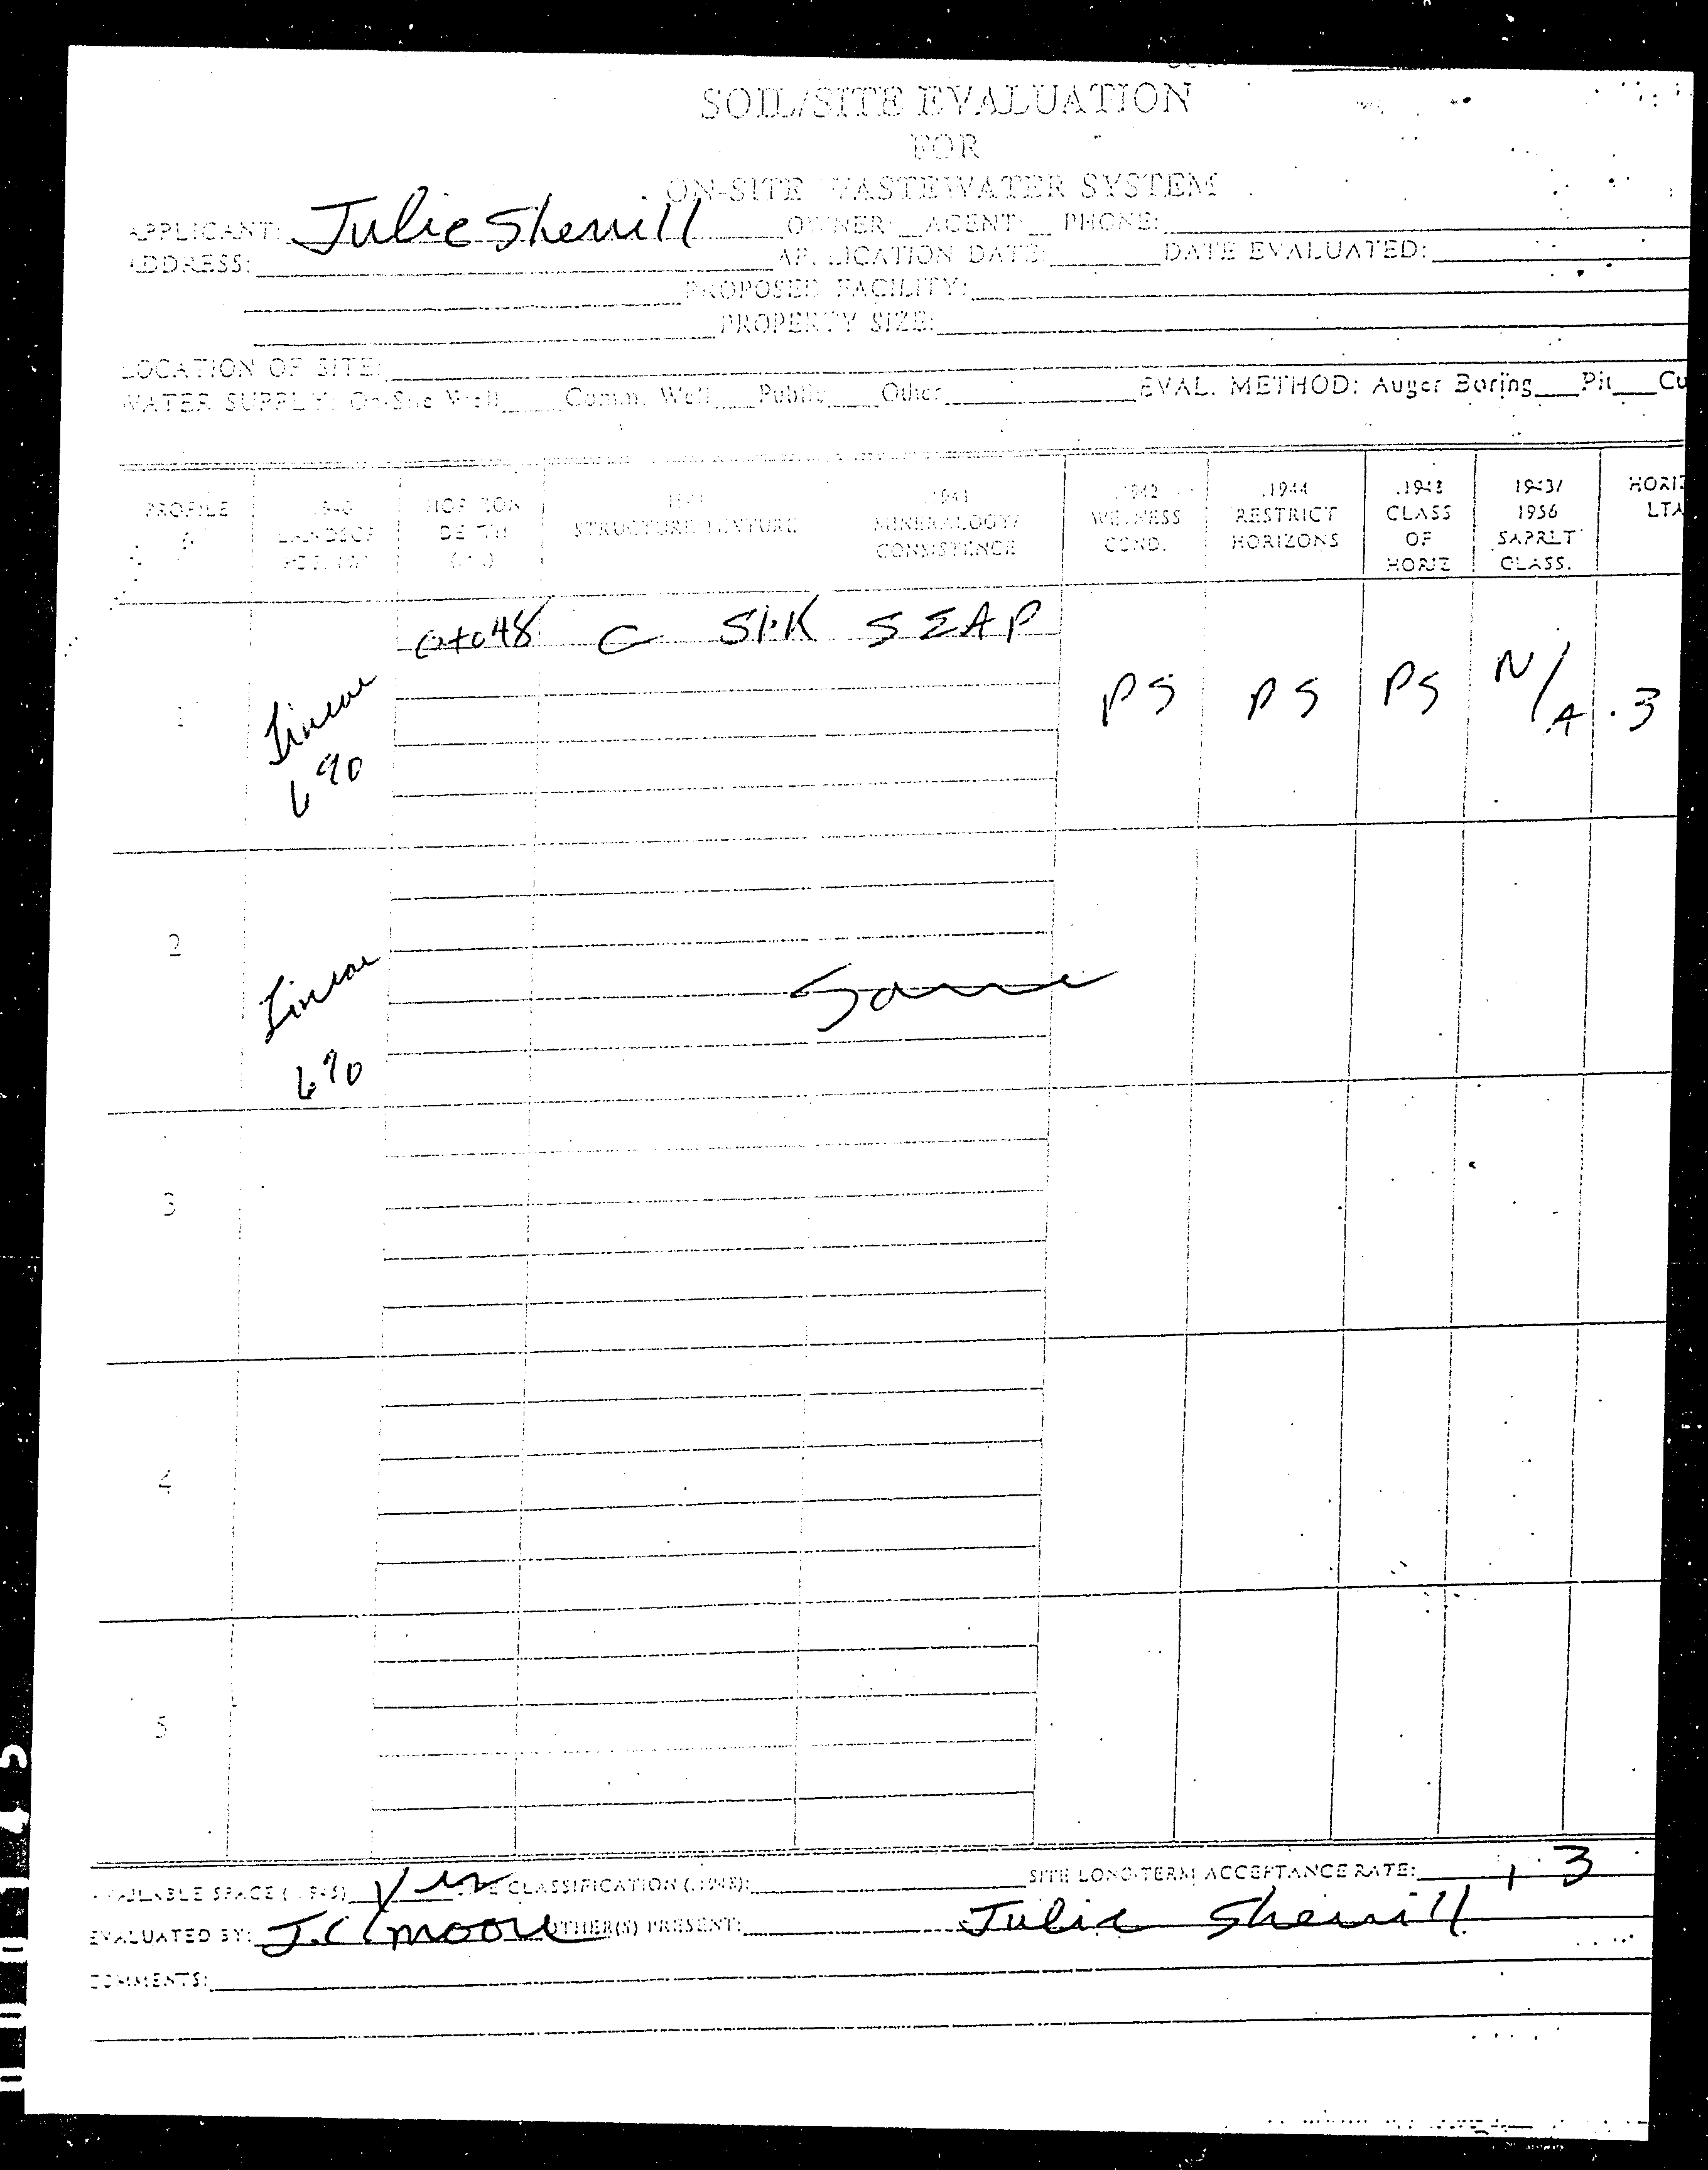 SOIL/SITE EVALUATION
FOR
ON-SITE WASTEWATER SYSTEM
APPLICANT: Julie Sherrill OWNER: AGENT: PHONE:
ADDRESS: APPLICATION DATE: DATE EVALUATED:
PROPOSED FACILITY:
PROPERTY SIZE:
LOCATION OF SITE:
WATER SUPPLY: On-Site Well Comm. Well Public Other EVAL. METHOD: Auger Boring Pit Cu
PROFILE # .1940 LANDSCP POSITION HORIZON DEPTH (IN.) .1941 STRUCTURE/TEXTURE .1941 MINERALOGY/ CONSISTENCE .1942 WETNESS COND. .1944 RESTRICT HORIZONS .1943 CLASS OF HORIZ 1943/ 1956 SAPRLT CLASS. HORIZ LTA
1 Linear 6% 0to48 C SBK PS PS PS N/A .3
2 Linear 6% Same
3
4
5
AVAILABLE SPACE (.1945) Yes SITE CLASSIFICATION (.1948): SITE LONG-TERM ACCEPTANCE RATE: .3
EVALUATED BY: J.C. Moore OTHER(S) PRESENT: Julie Sherrill
COMMENTS: